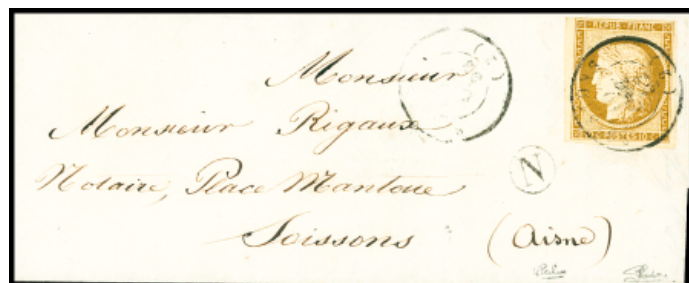 REPUB·FRANC
10 C POSTES 10 C
Monsieur
Monsieur Rigaux
Notaire, Place Mantoue
N
Soissons (Aisne)